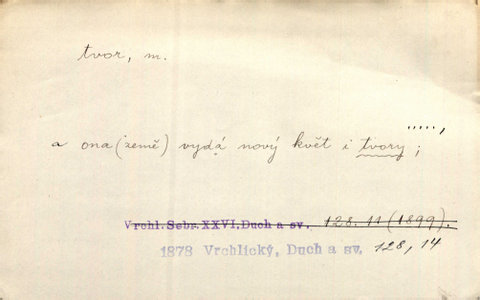 tvor, m.
a ona (země) vydá nový květ i tvory ;
Vrchl. Sebr. XXVI, Duch a sv. 128. 11 (1899).
1878 Vrchlický, Duch a sv. 128, 14